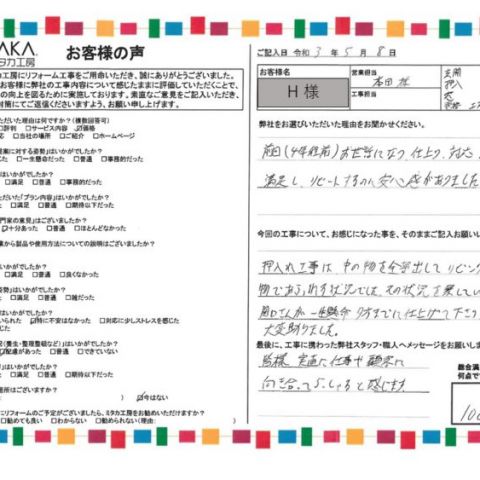 AKA.
タカ工房
お客様の声
カ工房にリフォーム工事をご用命いただき、誠にありがとうございました。
お客様に弊社の工事内容について感じたままに評価していただくことで、
の向上を図るために実施しております。率直なご意見をご記入いただき、
封筒にてご返信くださいますよう、お願い申し上げます。
ただいた理由は何ですか?(複数回答可)
□評判 □サービス内容 ☑価格
応 □当社の場所 □ご紹介 □ホームページ
提案に対する姿勢」はいかがでしたか?
じた □一生懸命だった □普通 □事務的だった
はいかがでしたか?
た □満足 □普通 □事務的だった
いただいた「プラン内容」はいかがでしたか?
た □満足 □普通 □期待以下だった
門家の意見」はございましたか?
☑十分あった □普通 □ほとんどなかった
者から製品や使用方法についての説明はございましたか?
いかがでしたか?
た □満足 □普通 □良くなかった
姿勢」はいかがでしたか?
た □満足 □普通 □雑だった
はいかがでしたか?
いられた ☑特に不安はなかった □対応に少しストレスを感じた
慮(養生・整理整頓など)」はいかがでしたか?
☑配慮があった □普通 □できていない
はいかがでしたか?
た □満足 □普通 □期待以下だった
箇所はございますか?
) ☑今はない
にリフォームのご予定がございましたら、ミタカ工房をお勧めいただけますか?
□勧めても良い □わからない □勧められない(理由:
ご記入日 令和 3 年 5 月 8 日
お客様名
H 様
営業担当
工事担当
玄関
押入
弊社をお選びいただいた理由をお聞かせください。
前回(4年程前)お世話になり 仕上り、対応
満足し、リピートするのに安心感がありました
今回の工事について、お感じになった事を、そのままご記入お願いし
押入れ工事は 中の物を全部出して リビング
物であふれる状況でした。その状況を
一生懸命 夕方までに仕上げて下さり
大変助りました。
最後に、工事に携わった弊社スタッフ・職人へメッセージをお願いし
皆様、実直に仕事や顧客に
向き合っていらっしゃると感じます
総合満
何点で
100